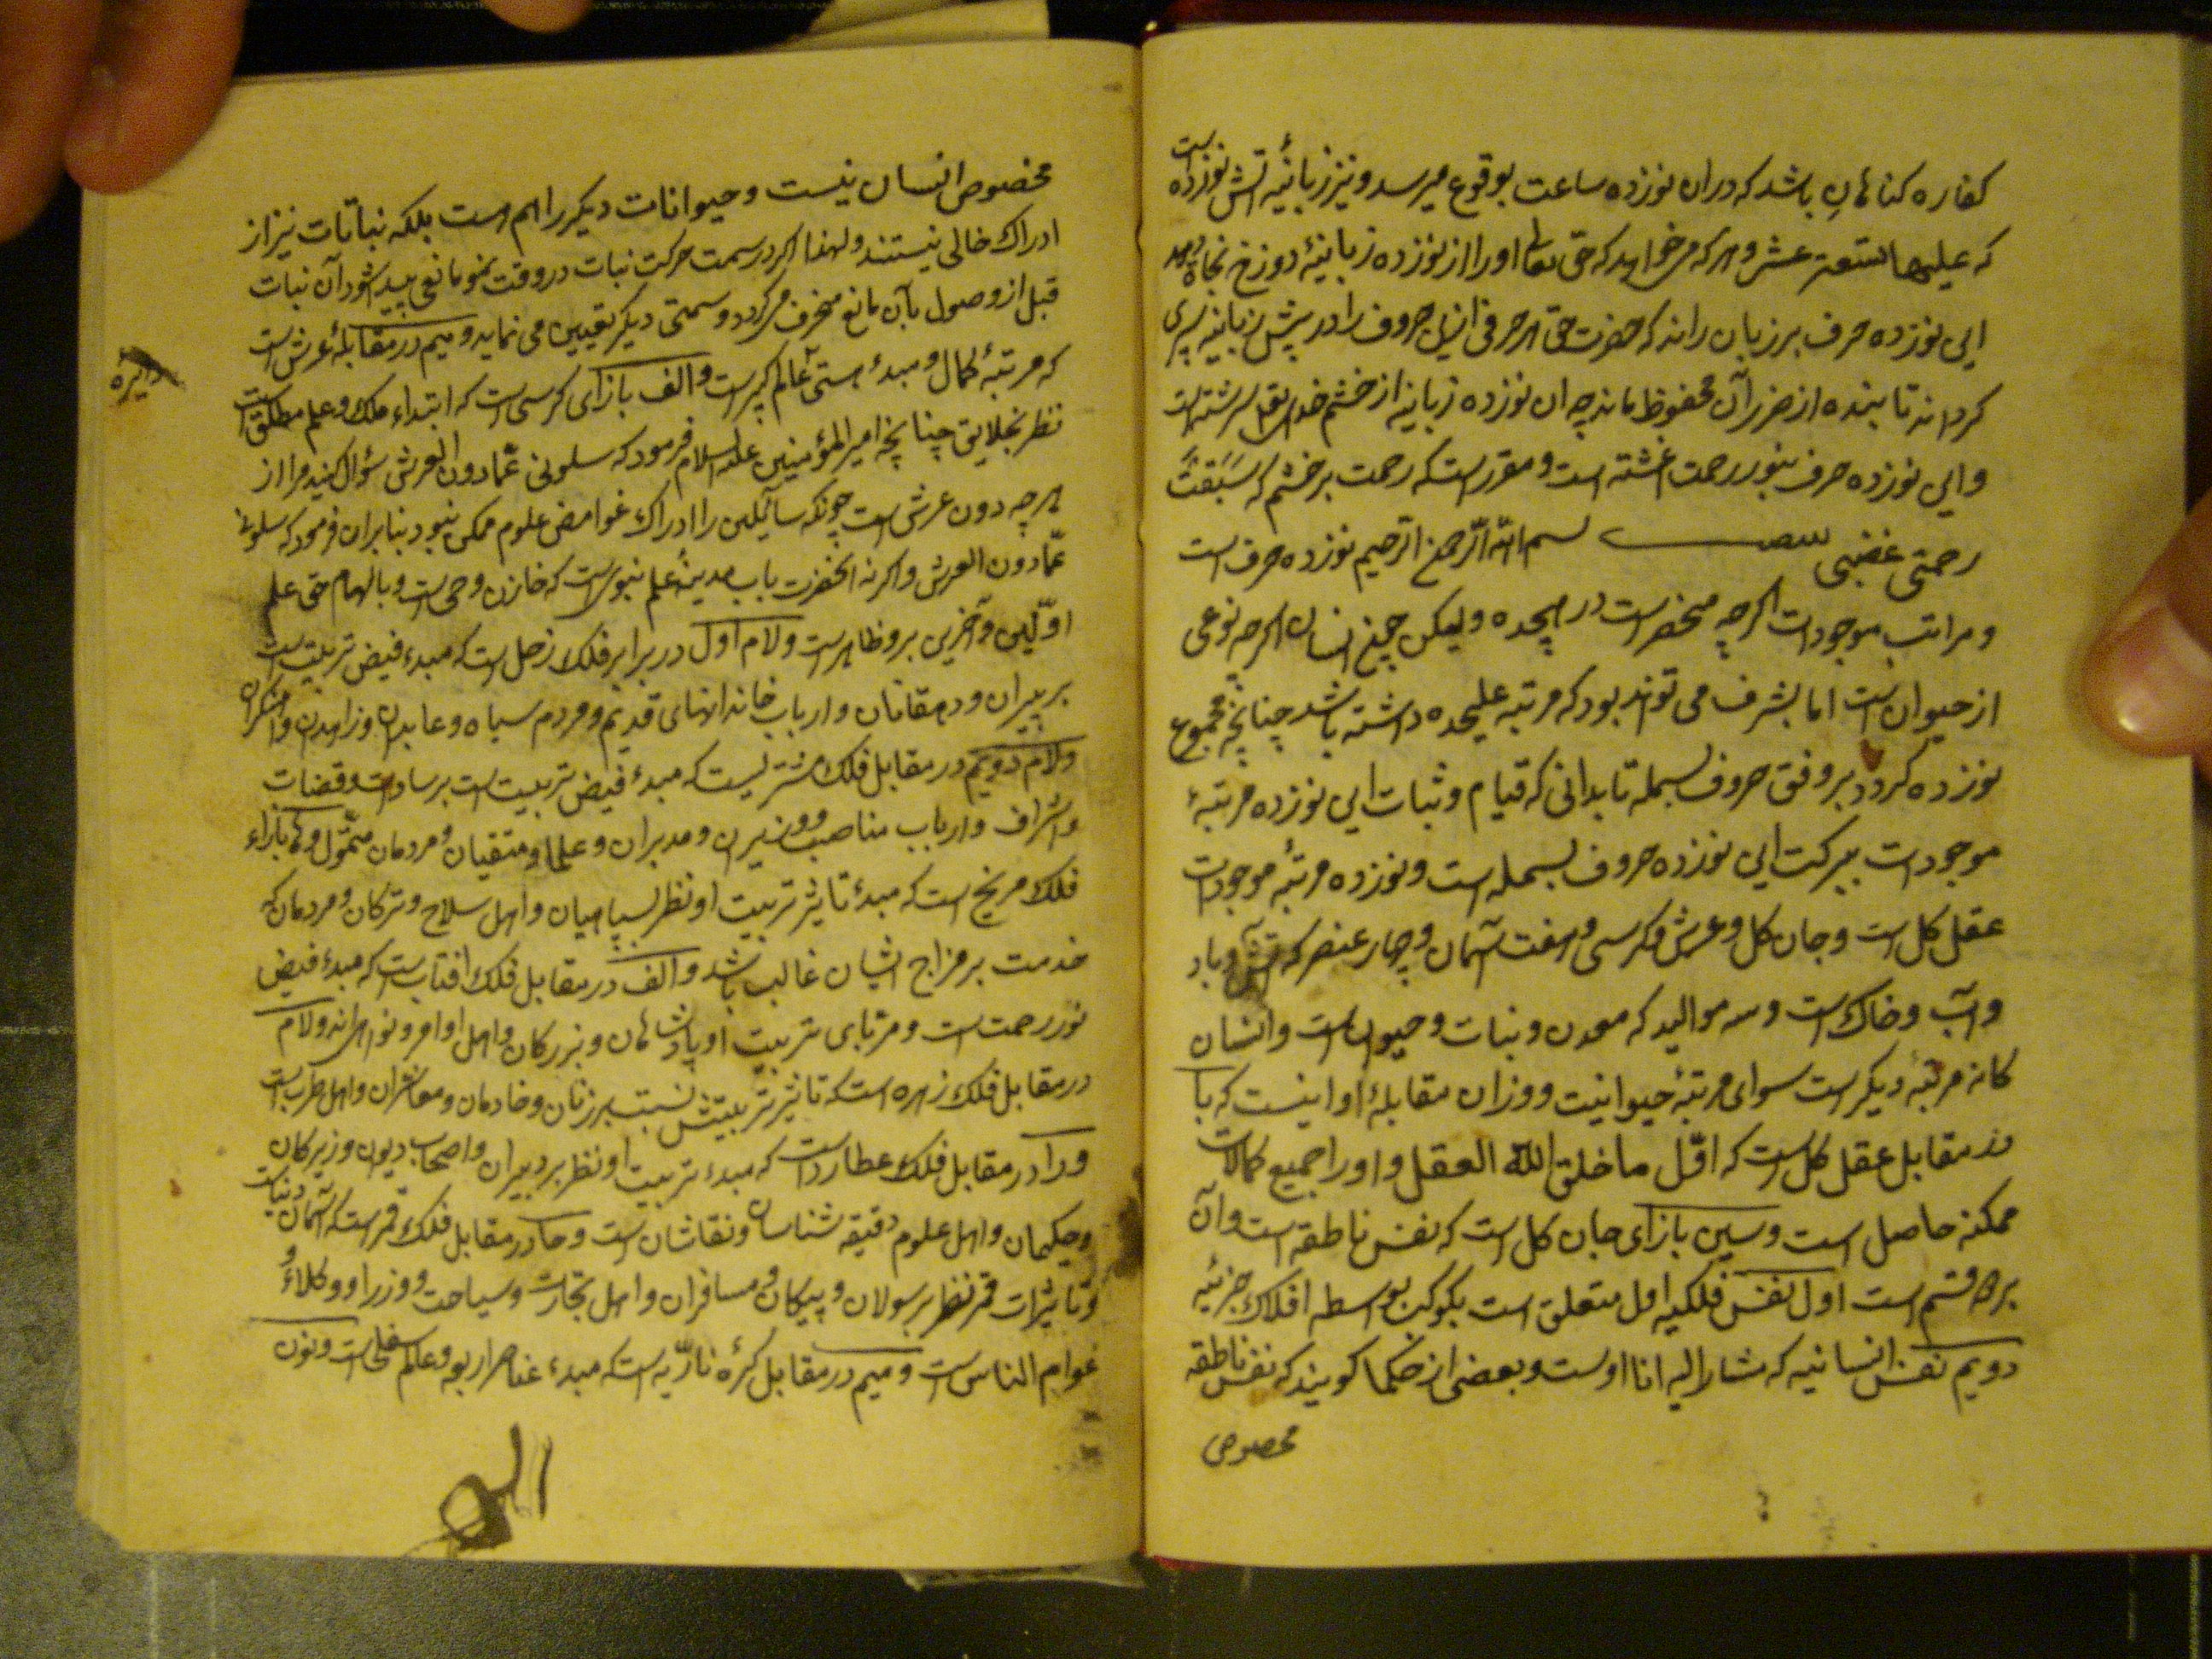 کفاره کناهان باشد که دران نوزده ساعت بوقوع میرسد و نیز زبانیهٔ آتش نوزده است
که علیها تسعة عشر و هر که میخواهد که حق تعالی اورا از نوزده زبانیهٔ دوزخ نجاة دهد
این نوزده حرف بر زبان راند که حضرت حق هر حرفی ازین حروف را در پیش زبانیه سپری
کرداند تا بنده از ضرر آن محفوظ ماند چه ان نوزده زبانیه از خشم خدای تعالی سرشته است
و این نوزده حرف بنور رحمت اغشته است و مقرر است که رحمت بر خشم که سَبَقَت
رحمتی غضبی بسم الله الرّحمن الرّحیم نوزده حرف است
و مراتب موجودات اکرچه منحصر است در هیجده ولیکن چون انسان اکرچه نوعی
از حیوان است اما بشرف می تواند بود که مرتبه علیحده داشته باشد چنانچه مجموع
نوزده کردد بر وفق حروف بسمله تا بدانی که قیام و ثبات این نوزده مرتبهٔ
موجودات ببرکت این نوزده حروف بسمله است و نوزده مرتبهٔ موجودات
عقل کل است و جان کل و عرش و کرسی و هفت آسمان و چهار عنصر که آتش و باد
و آب و خاک است و سه موالید که معدن و نبات و حیوان است و انسان
کانه مرتبهٔ دیکر است سوای مرتبهٔ حیوانیت و وزان مقابلهٔ او اینست که با
در مقابل عقل کل است که اوّل ما خلق الله العقل و اورا جمیع کمالات
ممکنه حاصل است و سین بازای جان کل است که نفس ناطقه است و آن
بر دو قسم است اول نفس فلکیه اول متعلق است بکوکب بواسطه افلاک جزئیه
دویم نفس انسانیه که مشار الیه انا اوست و بعضی از حکما کویند که نفس ناطقه
مخصوص
مخصوص انسان نیست و حیوانات دیکر را هم هست بلکه نباتات نیز از
ادراک خالی نیستند و لهذا اکر در سمت حرکت نبات در وقت نمو مانعی پیدا شود آن نبات
قبل از وصول بآن مانع منحرف میکردد و سمتی دیکر تعیین می نماید و میم در مقابلهٔ عرش است
که مرتبهٔ کمال و مبدء هستی عالم اکبر است و الف بازای کرسی است که ابتداء ملک و علم مطلق است
دایره
نظر بخلایق چنانچه امیر المؤمنین علیه السلام فرمود که سلونی عمّا دون العرش سؤال کنید مرا از
هرچه دون عرش است چونکه سائلین را ادراک غوامض علوم ممکن نبود بنابران فرمود که سلونی
عمّا دون العرش و اکر نه انحضرت باب مدینهٔ علم نبوی است که خازن وحی است و بالهام حق علم
اوّلین و آخرین برو ظاهر است و لام اول در برابر فلک زحل است که مبدء فیض تربیت است
بر پیران و دهقانان و ارباب خاندانهای قدیم و مردم سیاه و عابدان و زاهدان
و لام دویم در مقابل فلک مشتریست که مبدء فیض تربیت است بر سادات و قضات
و اشراف و ارباب مناصب و وزیران و مدبران و علما و متقیان و مردمان متموّل و ها بازاء
فلک مریخ است که مبدء تاثیر تربیت او نظر بسپاهیان و اهل سلاح و ترکان و مردمان که
خدمت بر مزاج ایشان غالب باشد و الف در مقابل فلک افتاب است که مبدء فیض
نور رحمت است و مرتبای تربیت او پادشاهان و بزرکان و اهل اوامر و نواهی اند و لام
در مقابل فلک زهره است که تاثیر تربیتش نسبت بر زنان و خادمان و معاشران و اهل طرب است
و را در مقابل فلک عطارد است که مبدء تربیت او نظر بر دبیران و اصحاب دیوان و زیرکان
و حکیمان و اهل علوم دقیقه شناسان و نقاشان است و حا در مقابل فلک قمر است که آسمان دنیاست
و تاثیرات قمر نظر برسولان و پیکان و مسافران و اهل تجارت و سیاحت و وزرا و وکلاءُ
عوام الناس است و میم در مقابل کرهٔ ناریّه است که مبدء عناصر اربعه و عالم سفلی است و نون